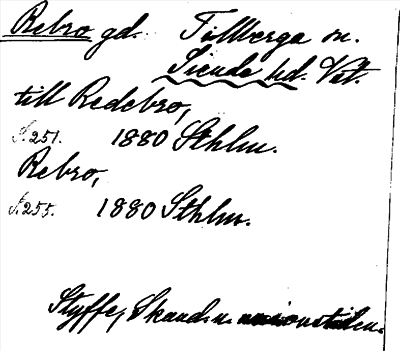 Rebro gd. Tillberga sn.
Siende hd. Vstl.
till Redebro,
S. 251. 1880 Sthlm.
Rebro,
S. 255. 1880 Sthlm.
Styffe, Skand. u. unionstiden.